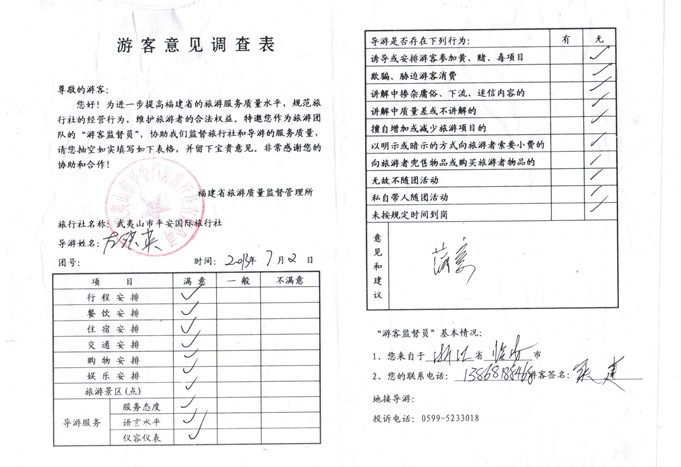 游客意见调查表
尊敬的游客:
您好!为进一步提高福建省的旅游服务质量水平,规范旅
行社的经营行为,维护旅游者的合法权益。特邀您作为旅游
团队的“游客监督员”,协助我们监督旅行社和导游的服务质量,
请您抽空如实填写如下表格,并留下宝贵意见。非常感谢您的
协助和合作!
福建省旅游质量监督管理所
旅行社名称:武夷山市平安国际旅行社
导游姓名:
团号: 时间:2013年7月2日
项 目 满意 一般 不满意
行程安排 ✓
餐饮安排 ✓
住宿安排 ✓
交通安排 ✓
购物安排 ✓
娱乐安排 ✓
旅游景区(点) ✓
导游服务 服务态度 ✓
语言水平 ✓
仪容仪表 ✓
导游是否存在下列行为: 有 无
诱导或安排游客参加黄、赌、毒项目 ✓
欺骗、胁迫游客消费 ✓
讲解中掺杂庸俗、下流、迷信内容的 ✓
讲解中质量差或不讲解的 ✓
擅自增加或减少旅游项目的 ✓
以明示或暗示的方式向旅游者索要小费的 ✓
向旅游者兜售物品或购买旅游者物品的 ✓
无故不随团活动 ✓
私自带人随团活动 ✓
未按规定时间到岗 ✓
意见和建议 满意
“游客监督员”基本情况:
1、您来自于 浙江 省 临安 市
2、您的联系电话: 游客签名:
地接导游:
投诉电话:0599-5233018